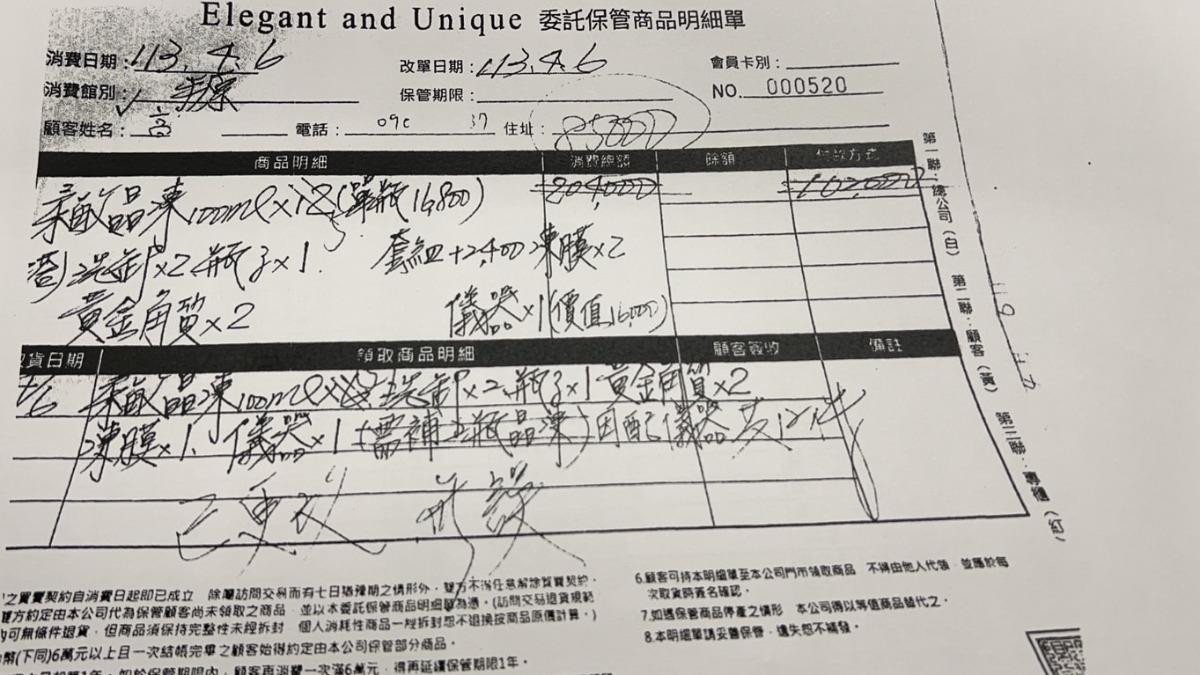 Elegant and Unique 委託保管商品明細單
消費日期：113.4.6 改單日期：113.4.6 會員卡別：
消費館別： 保管期限： NO. 000520
顧客姓名：高 電話：09 37 住址：85000
商品明細 消費總額 餘額 付款方式
晶凍100ml×12 (單瓶16,800) 204,000 162,000
×2 瓶子×1 套組+2,400 凍膜×2
黃金角質×2 儀器×1(價值16,000)
取貨日期 領取商品明細 顧客簽收 備註
4/6 晶凍100ml ×2 瓶子×1 黃金角質×2
凍膜×1 儀器×1 (需補 瓶晶凍) 因配儀器
已更改
第一聯：總公司（白） 第二聯：顧客（黃） 第三聯：專櫃（紅）
之買賣契約自消費日起即已成立 除屬訪問交易而有七日猶豫期之情形外，雙方不得任意解除買賣契約。
雙方約定由本公司代為保管顧客尚未領取之商品 並以本委託保管商品明細單為憑。(訪問交易退貨規範
可無條件退貨，但商品須保持完整性未經拆封 個人消耗性商品一經拆封恕不退換按商品原價計算。)
幣(下同)6萬元以上且一次結帳完畢之顧客始得約定由本公司保管部分商品。
如於保管期限內，顧客再消費一次滿6萬元，得再延續保管期限1年。
6.顧客可持本明細單至本公司門市領取商品 不得由他人代領，並應於每
次取貨時簽名確認。
7.如遇保管商品停產之情形 本公司得以等值商品替代之。
8.本明細單請妥善保管，遺失恕不補發。